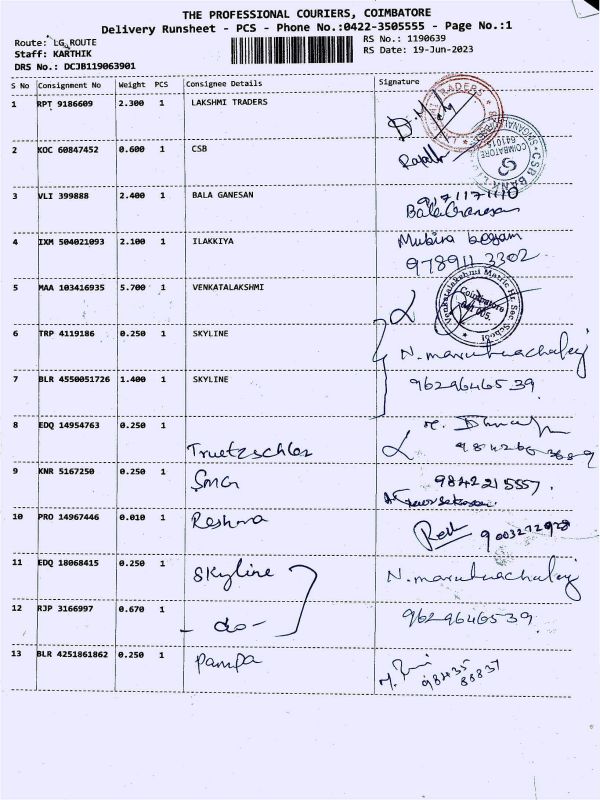 THE PROFESSIONAL COURIERS, COIMBATORE
Delivery Runsheet - PCS - Phone No.:0422-3505555 - Page No.:1
Route: LG ROUTE
RS No.: 1190639
Staff: KARTHIK
RS Date: 19-Jun-2023
DRS No.: DCJB119063901
S No Consignment No Weight PCS Consignee Details Signature
1 RPT 9186609 2.300 1 LAKSHMI TRADERS
2 KOC 60847452 0.600 1 CSB
CSB BANK
COIMBATORE
3 VLI 399888 2.400 1 BALA GANESAN
Bala Ganesan
4 IXM 504021093 2.100 1 ILAKKIYA Mubira begam
978911 3302
5 MAA 103416935 5.700 1 VENKATALAKSHMI
Venkatalakshmi Matric Hr. Sec. School
Coimbatore
641 005.
6 TRP 4119186 0.250 1 SKYLINE
N. maruthachalaj
7 BLR 4550051726 1.400 1 SKYLINE 9629646539
8 EDQ 14954763 0.250 1
Truetzschler
9 KNR 5167250 0.250 1 SMG 9842215557.
10 PRO 14967446 0.010 1 Reshma
11 EDQ 18068415 0.250 1 Skyline N. maruthachalaj
12 RJP 3166997 0.670 1 - do - 9629646539
13 BLR 4251861862 0.250 1 Pampa
98435
88837